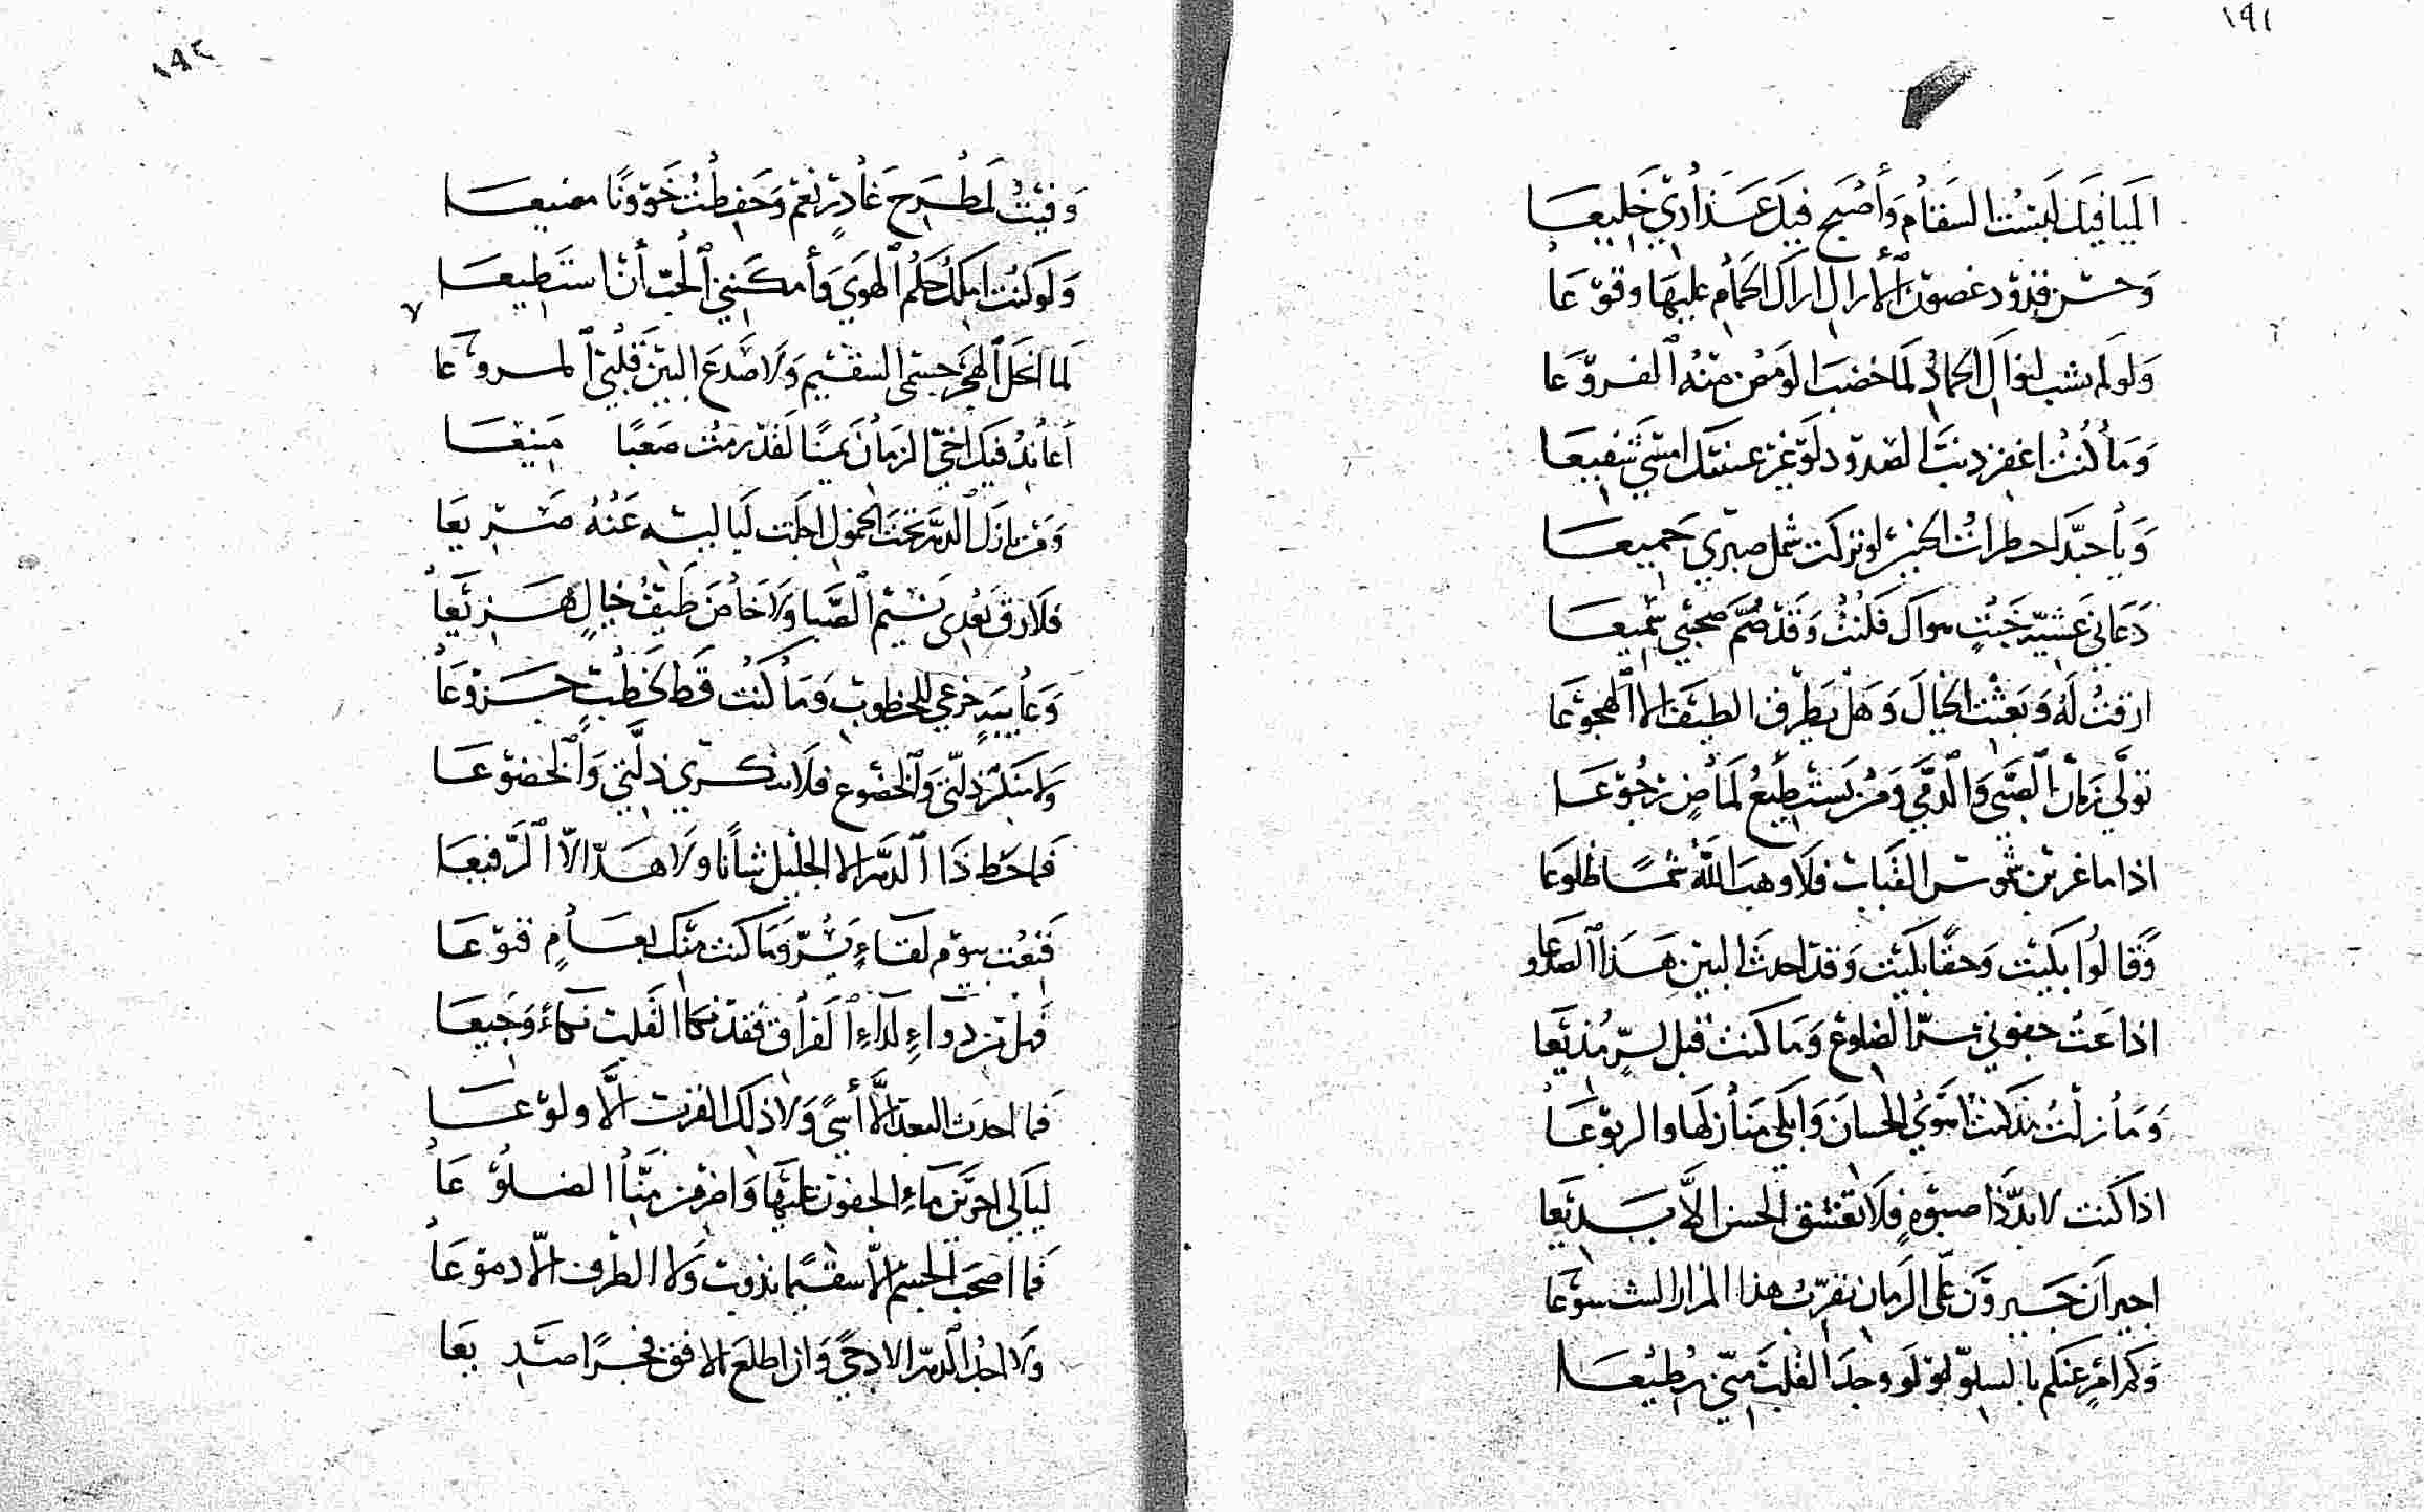 ١٩١
المياء فيك لبست السقام وأصبح فيك عذاري خليعا
وحسن قدود غصون الأراك أراك الحمام عليها وقوعا
ولو لم يشب الجمال لما خضبا لو من منه الفروعا
وما كنت اغفر ذنب الصدود لو غير عينيك امسى شفيعا
ويا حبذا خطرات لو تركت شمل صبري جميعا
دعاني عشية خبت هواك فكنت وقد صم صحبي سميعا
ارقت له وبعثت الخيال وهل يطرق الطيف الا الهجوعا
تولي زمان الصبى والدمى ومن يستطيع لماض رجوعا
اذا ما غربن شموس القباب فلا وهب الله شمسا طلوعا
وقالوا بكيت وحقا بكيت وقد احدث البين هذا الصدوعا
اذاعت جفوني سر الضلوع وما كنت قبل لسر مذيعا
وما زلت مذ كنت اهوي الحسان وابكي منازلها والربوعا
اذا كنت لا بد ذا صبوة فلا تعشق الحسن الا بديعا
اجيران جيرون على الزمان يقرب هذا المزار الشسوعا
وكم امر عنكم بالسلو لو وجد القلب مني مطيعا
١٩٢
وفيت لمطرح غادر نعم وحفظت خؤونا مضيعا
ولو كنت املك حكم الهوي وأمكنني الحب أن استطيعا
لما انحل الهجر جسمي السقيم ولا صدع البين قلبي المروعا
أعاند فيك اخي الزمان لقد رمت صعبا منيعا
ومن نازل الدهر تحت الخمول اجلت لياليه عنه صريعا
فلا رق بعدى نسيم الصبا ولا خاض طيف خيال هزيعا
وعايبة جزعي للخطوب وما كنت قط لخطب جزوعا
ولا منكر ذلتي والخضوع فلا تنكري ذلتي والخضوعا
فما حط ذا الدهر الا الجليل شانا ولا هد الا الرفيعا
قنعت بيوم لقاء يسر وما كنت منك بعام قنوعا
فهل من دواء لداء الفراق فقد نكا القلب نكاء وجيعا
فما احدث البعد الا أسى ولا ذلك القرب الا ولوعا
ليالى اجرين ماء الجفون عليها واضرمن منا الضلوعا
فما اصحب الجسم الا سقيما يذوب ولا الطرف الا دموعا
ولا اجد الدهر الا دجي وان اطلع الافق فجرا صديعا